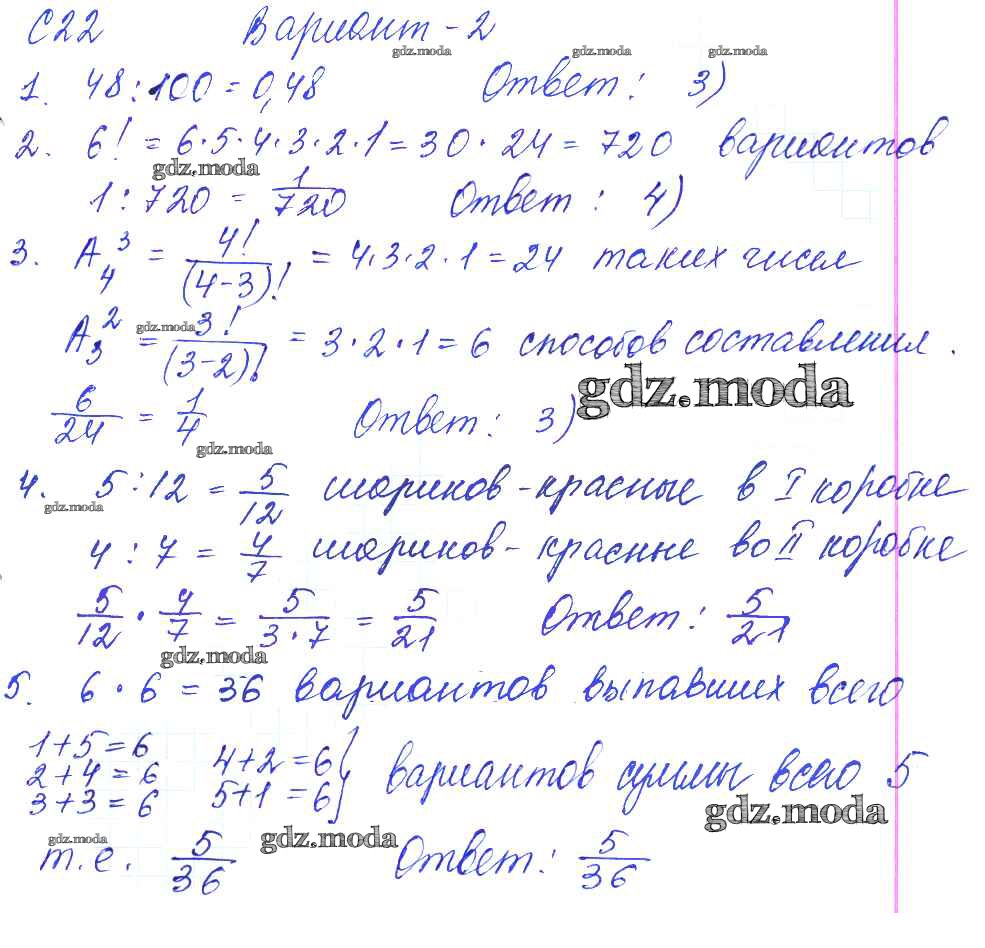 С22 Вариант - 2
gdz.moda gdz.moda gdz.moda
1. 48 : 100 = 0,48 Ответ : 3)
2. 6! = 6·5·4·3·2·1 = 30 · 24 = 720 вариантов
gdz.moda
1 : 720 = 1/720 Ответ : 4)
3. A₄³ = 4!/(4-3)! = 4·3·2·1 = 24 таких чисел
A₃² = 3!/(3-2)! = 3·2·1 = 6 способов составления.
gdz.moda
gdz.moda
6/24 = 1/4 Ответ : 3)
gdz.moda
4. 5 : 12 = 5/12 шариков - красные в I коробке
gdz.moda
4 : 7 = 4/7 шариков - красные во II коробке
5/12 · 4/7 = 5/(3·7) = 5/21 Ответ : 5/21
gdz.moda
5. 6 · 6 = 36 вариантов выпавших всего
1+5=6 4+2=6
2+4=6 5+1=6 } вариантов суммы всего 5
3+3=6
gdz.moda
gdz.moda gdz.moda
т.е. 5/36 Ответ : 5/36